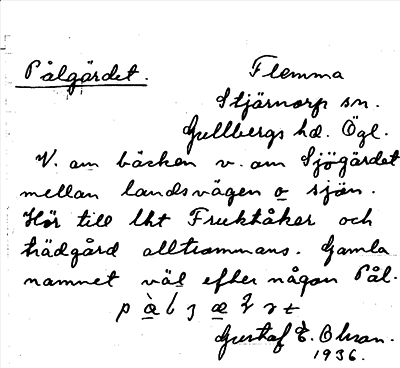 Pålgärdet. Flemma
Stjärnorp sn.
Gullbergs hd. Ögl.
V. om bäcken v. om Sjögärdet
mellan landsvägen o sjön.
Hör till lht Fruktåker och
trädgård alltsammans. Gamla
namnet väl efter någon Pål.
Gustaf E. Olson.
1936.